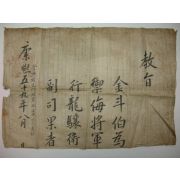 教旨
金斗伯爲
禦侮將軍
行龍驤衛
副司果者
康熙五十九年八月　日